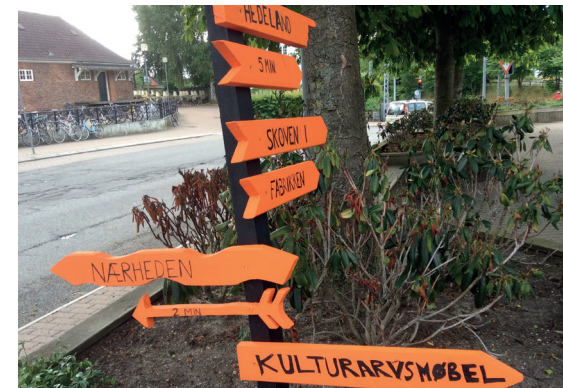 HEDELAND
5 MIN
SKOVEN I
FABRIKKEN
NÆRHEDEN
2 MIN
KULTURARVSMØBEL